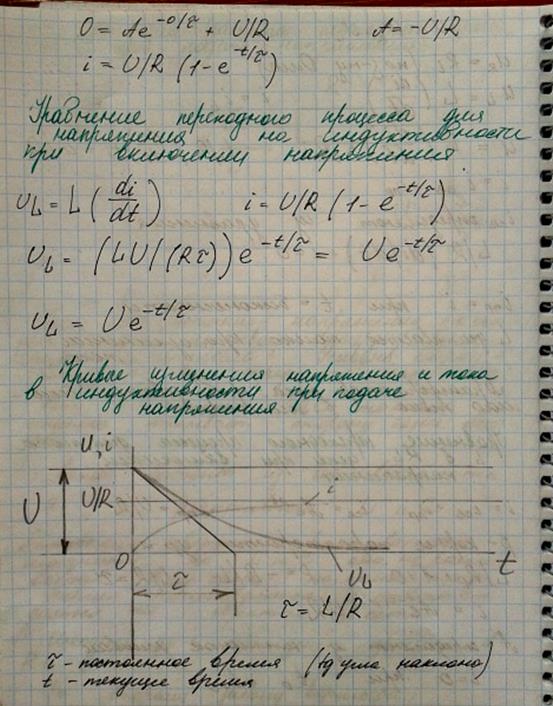 0 = Ae^{-0/τ} + U/R A = -U/R
i = U/R (1-e^{-t/τ})
Уравнение переходного процесса для
напряжения на индуктивности
при включении напряжения
u_L = L (di/dt) i = U/R (1-e^{-t/τ})
u_L = (LU/(Rτ)) e^{-t/τ} = Ue^{-t/τ}
u_L = Ue^{-t/τ}
Кривые изменения напряжения и тока
в индуктивности при подаче
напряжения
u, i
U/R
i
U
0
t
τ
u_L
τ = L/R
τ - постоянное время (tg угла наклона)
t - текущее время